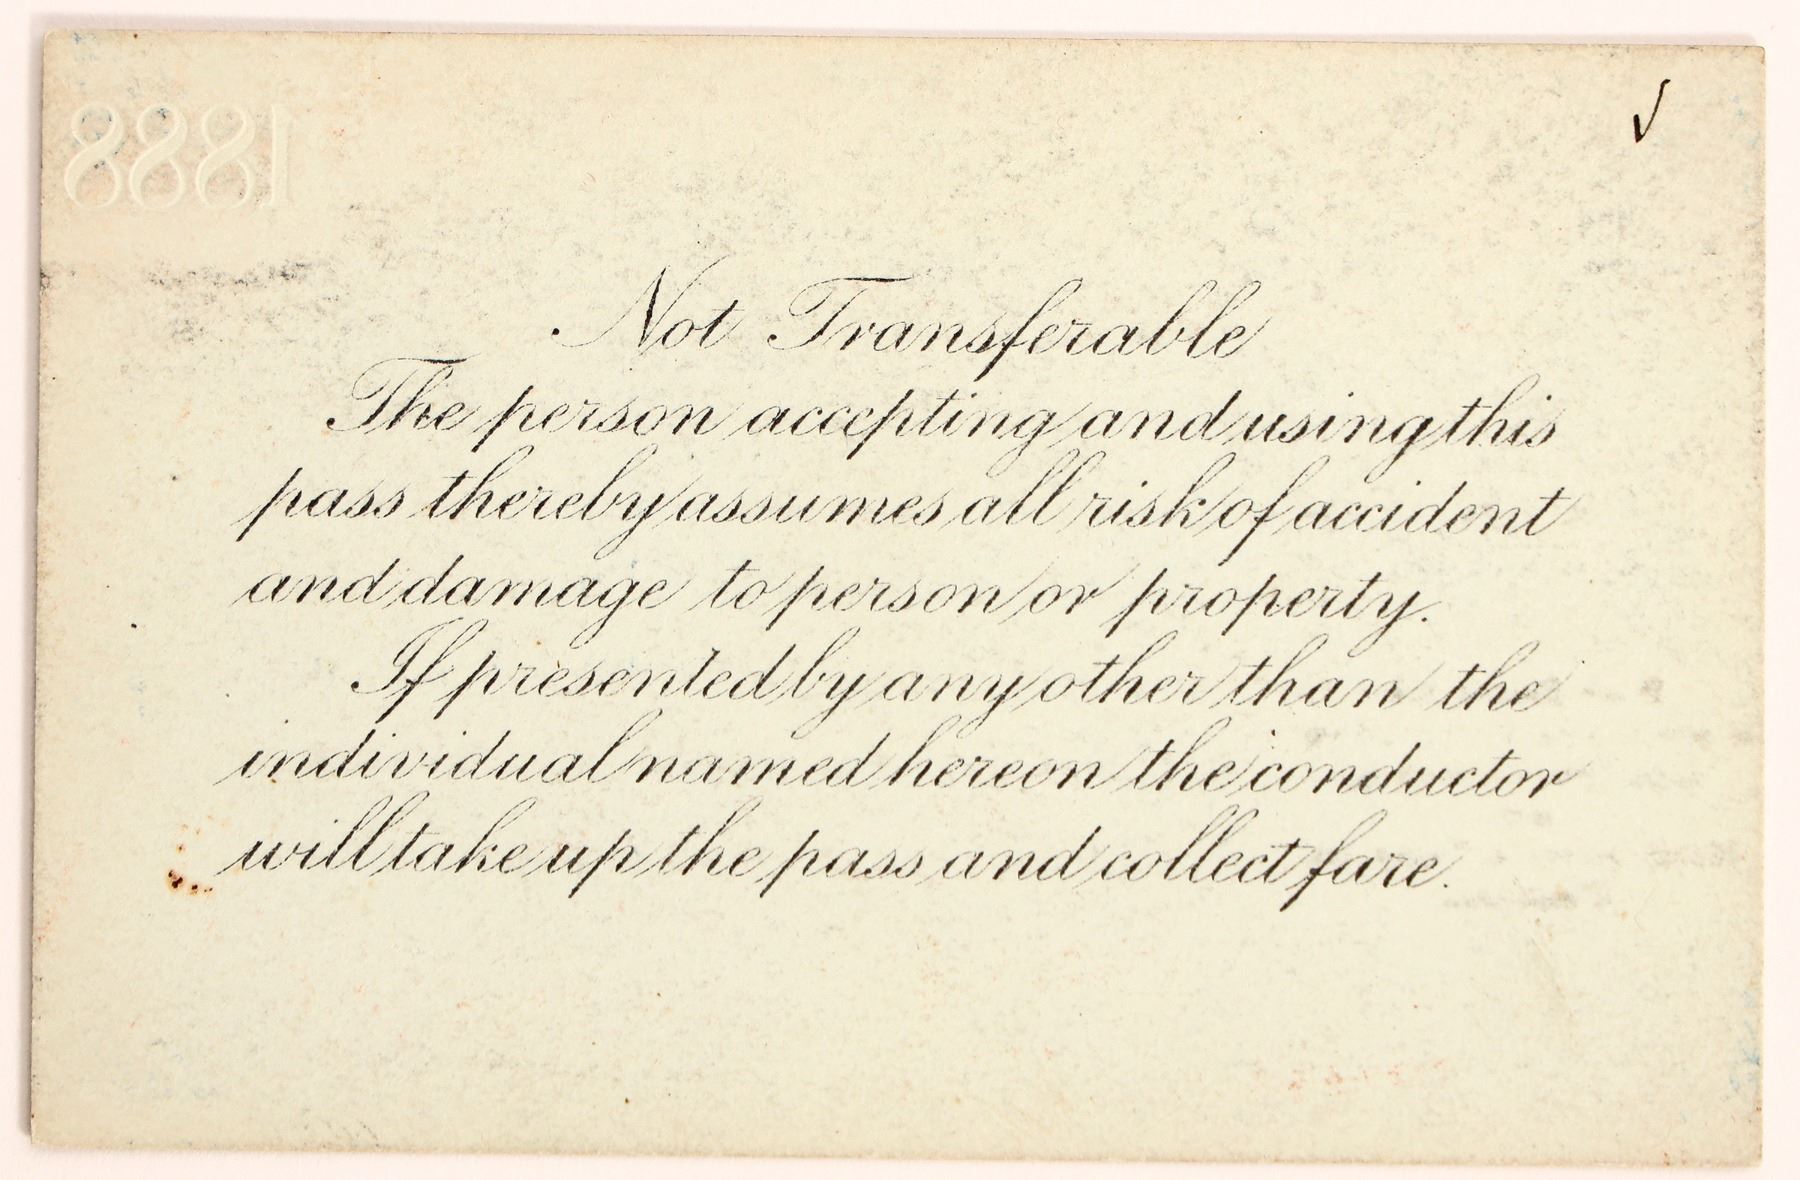 1888
Not Transferable
The person accepting and using this
pass thereby assumes all risk of accident
and damage to person or property.
If presented by any other than the
individual named hereon the conductor
will take up the pass and collect fare.